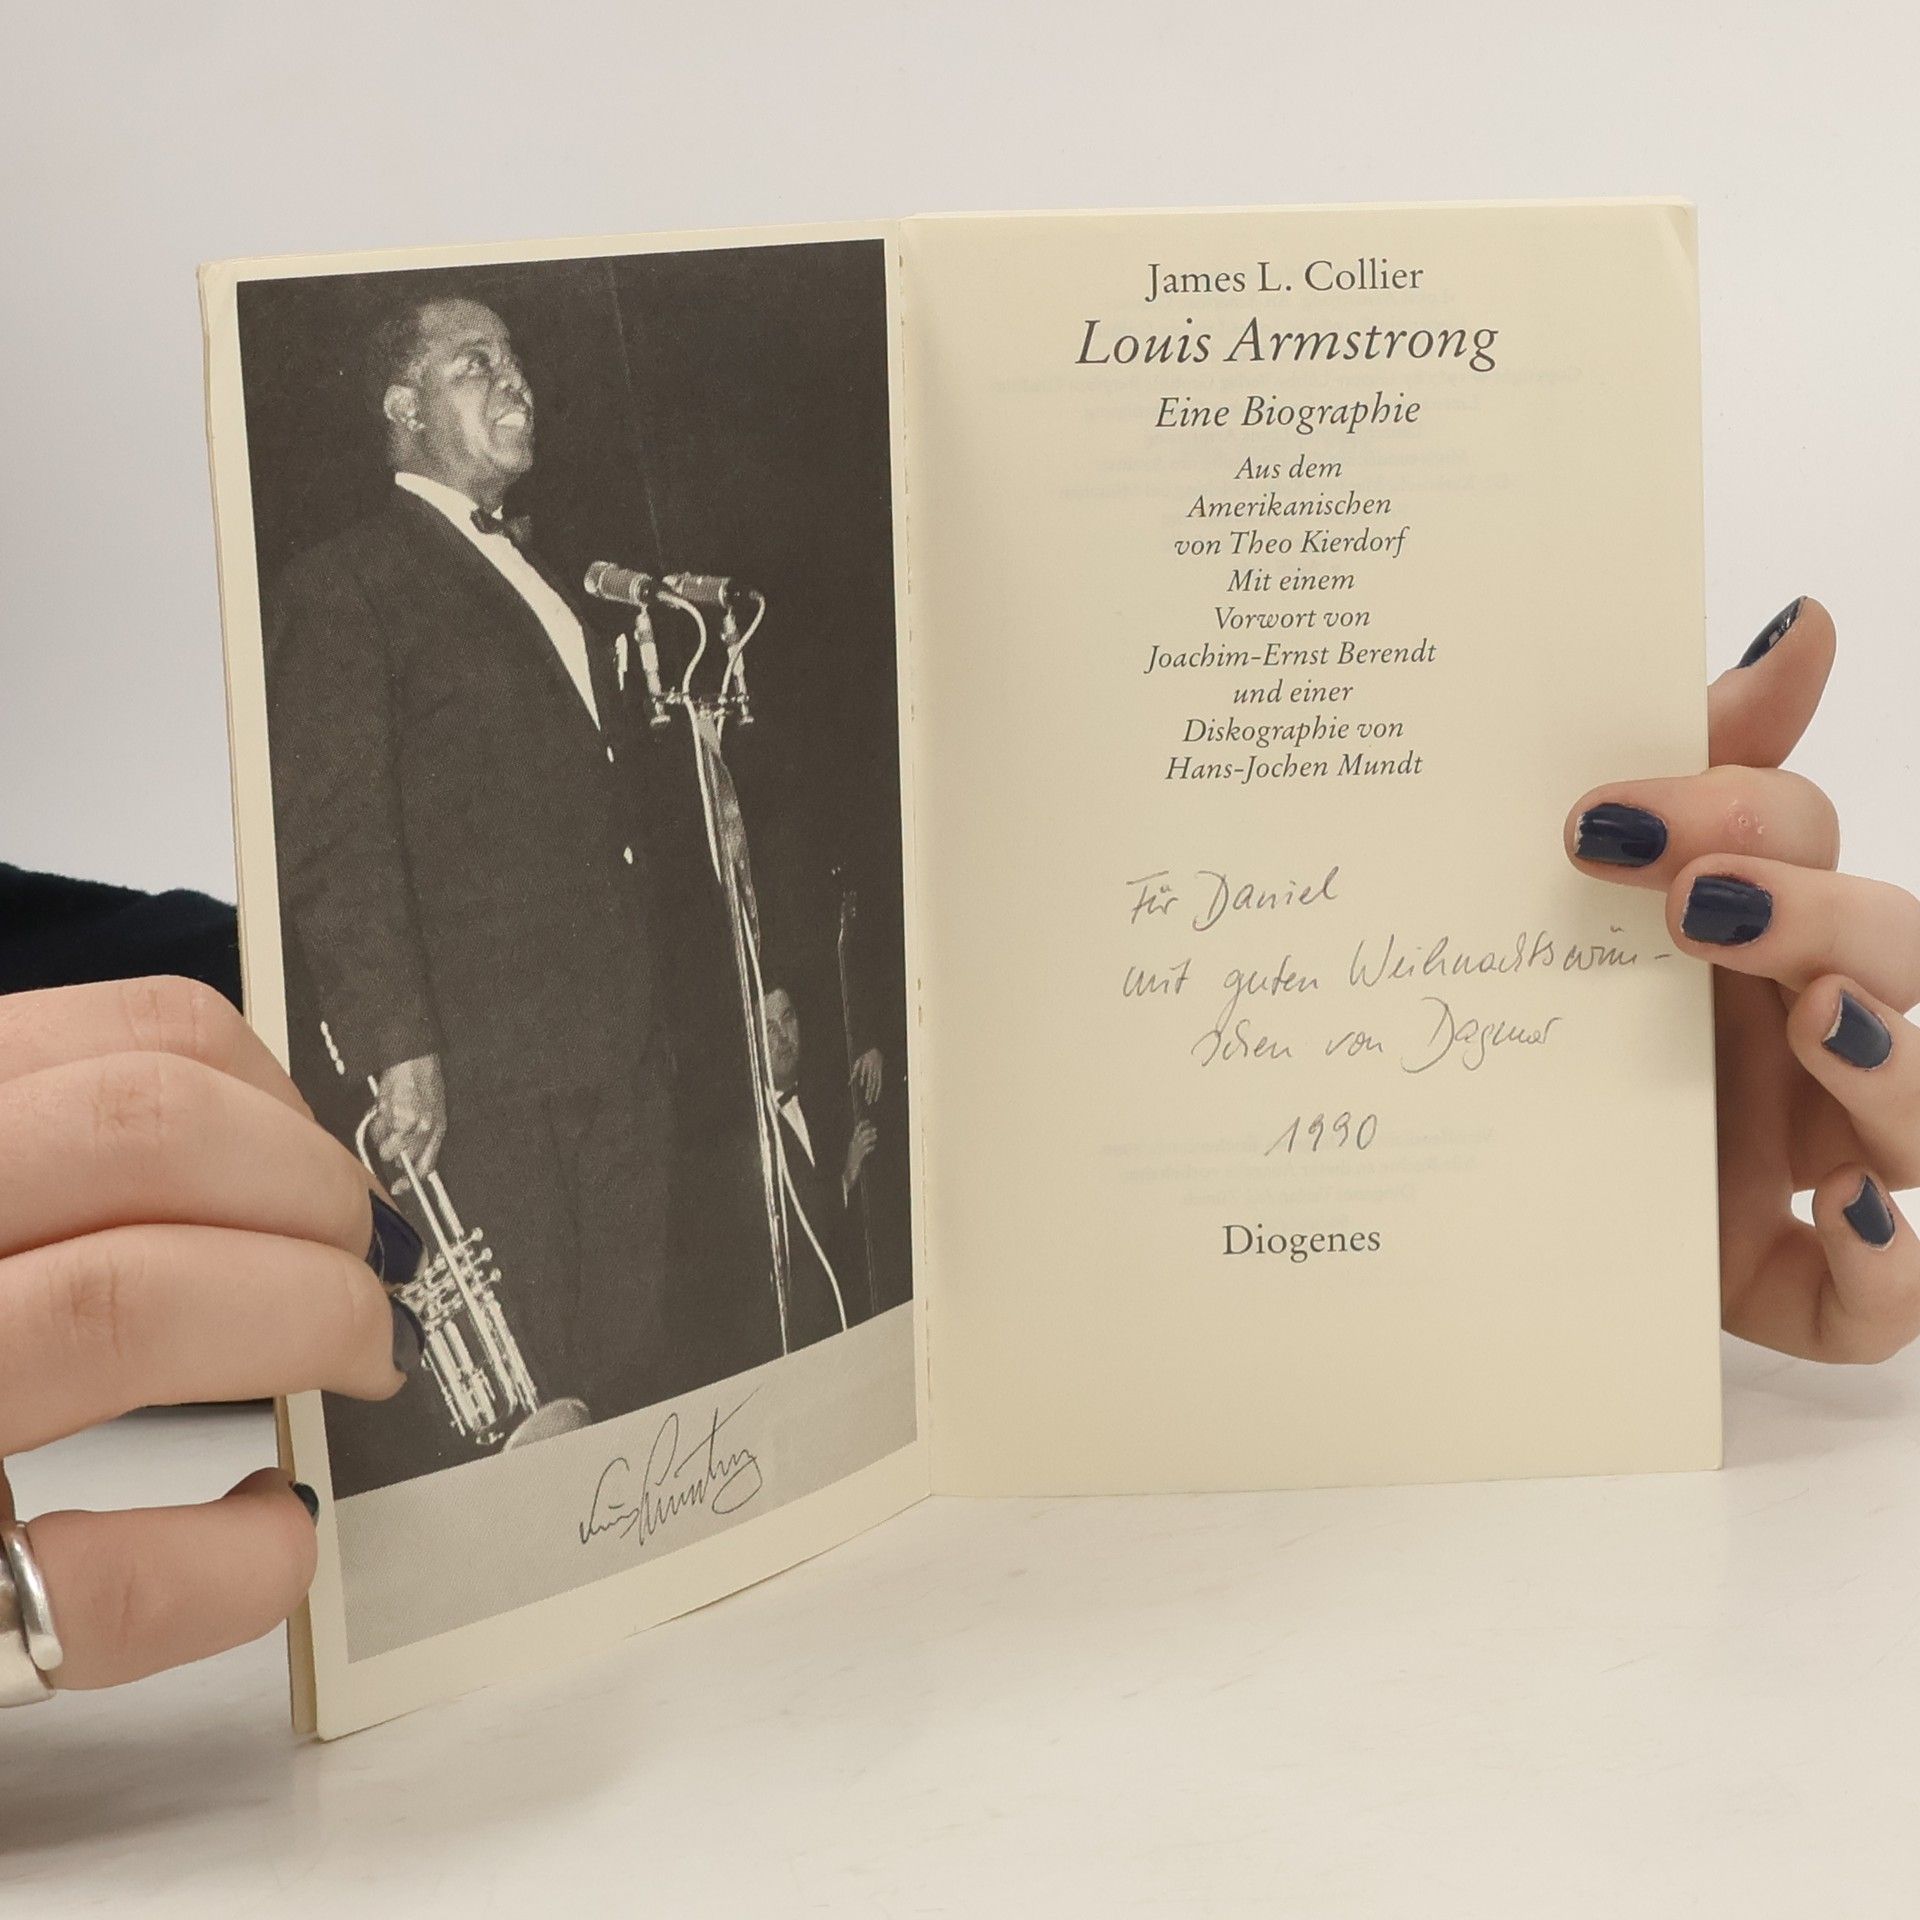 James L. Collier
Louis Armstrong
Eine Biographie
Aus dem
Amerikanischen
von Theo Kierdorf
Mit einem
Vorwort von
Joachim-Ernst Berendt
und einer
Diskographie von
Hans-Jochen Mundt
Für Daniel
mit guten Weihnachtswün-
schen von Dagmar
1990
Diogenes